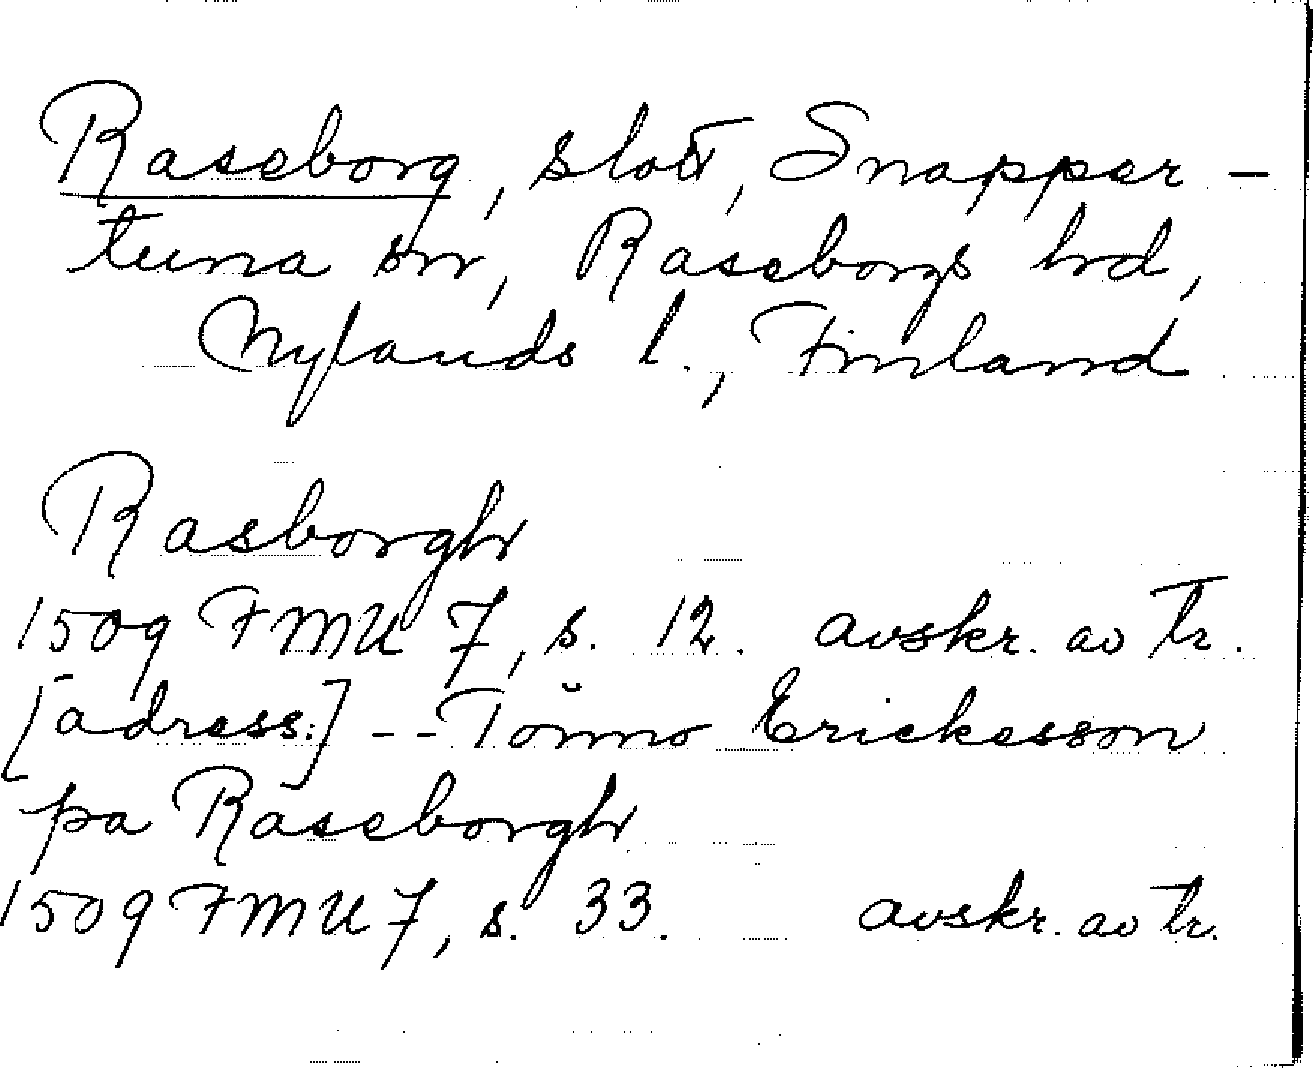 Raseborg, slott, Snapper-
tuna sn, Raseborgs hrd,
Nylands l., Finland
Rasborgh
1509 FMU 7, s. 12. avskr. av tr.
[adress:] -- Tönno Erickesson
pa Raseborgh
1509 FMU 7, s. 33. avskr. av tr.